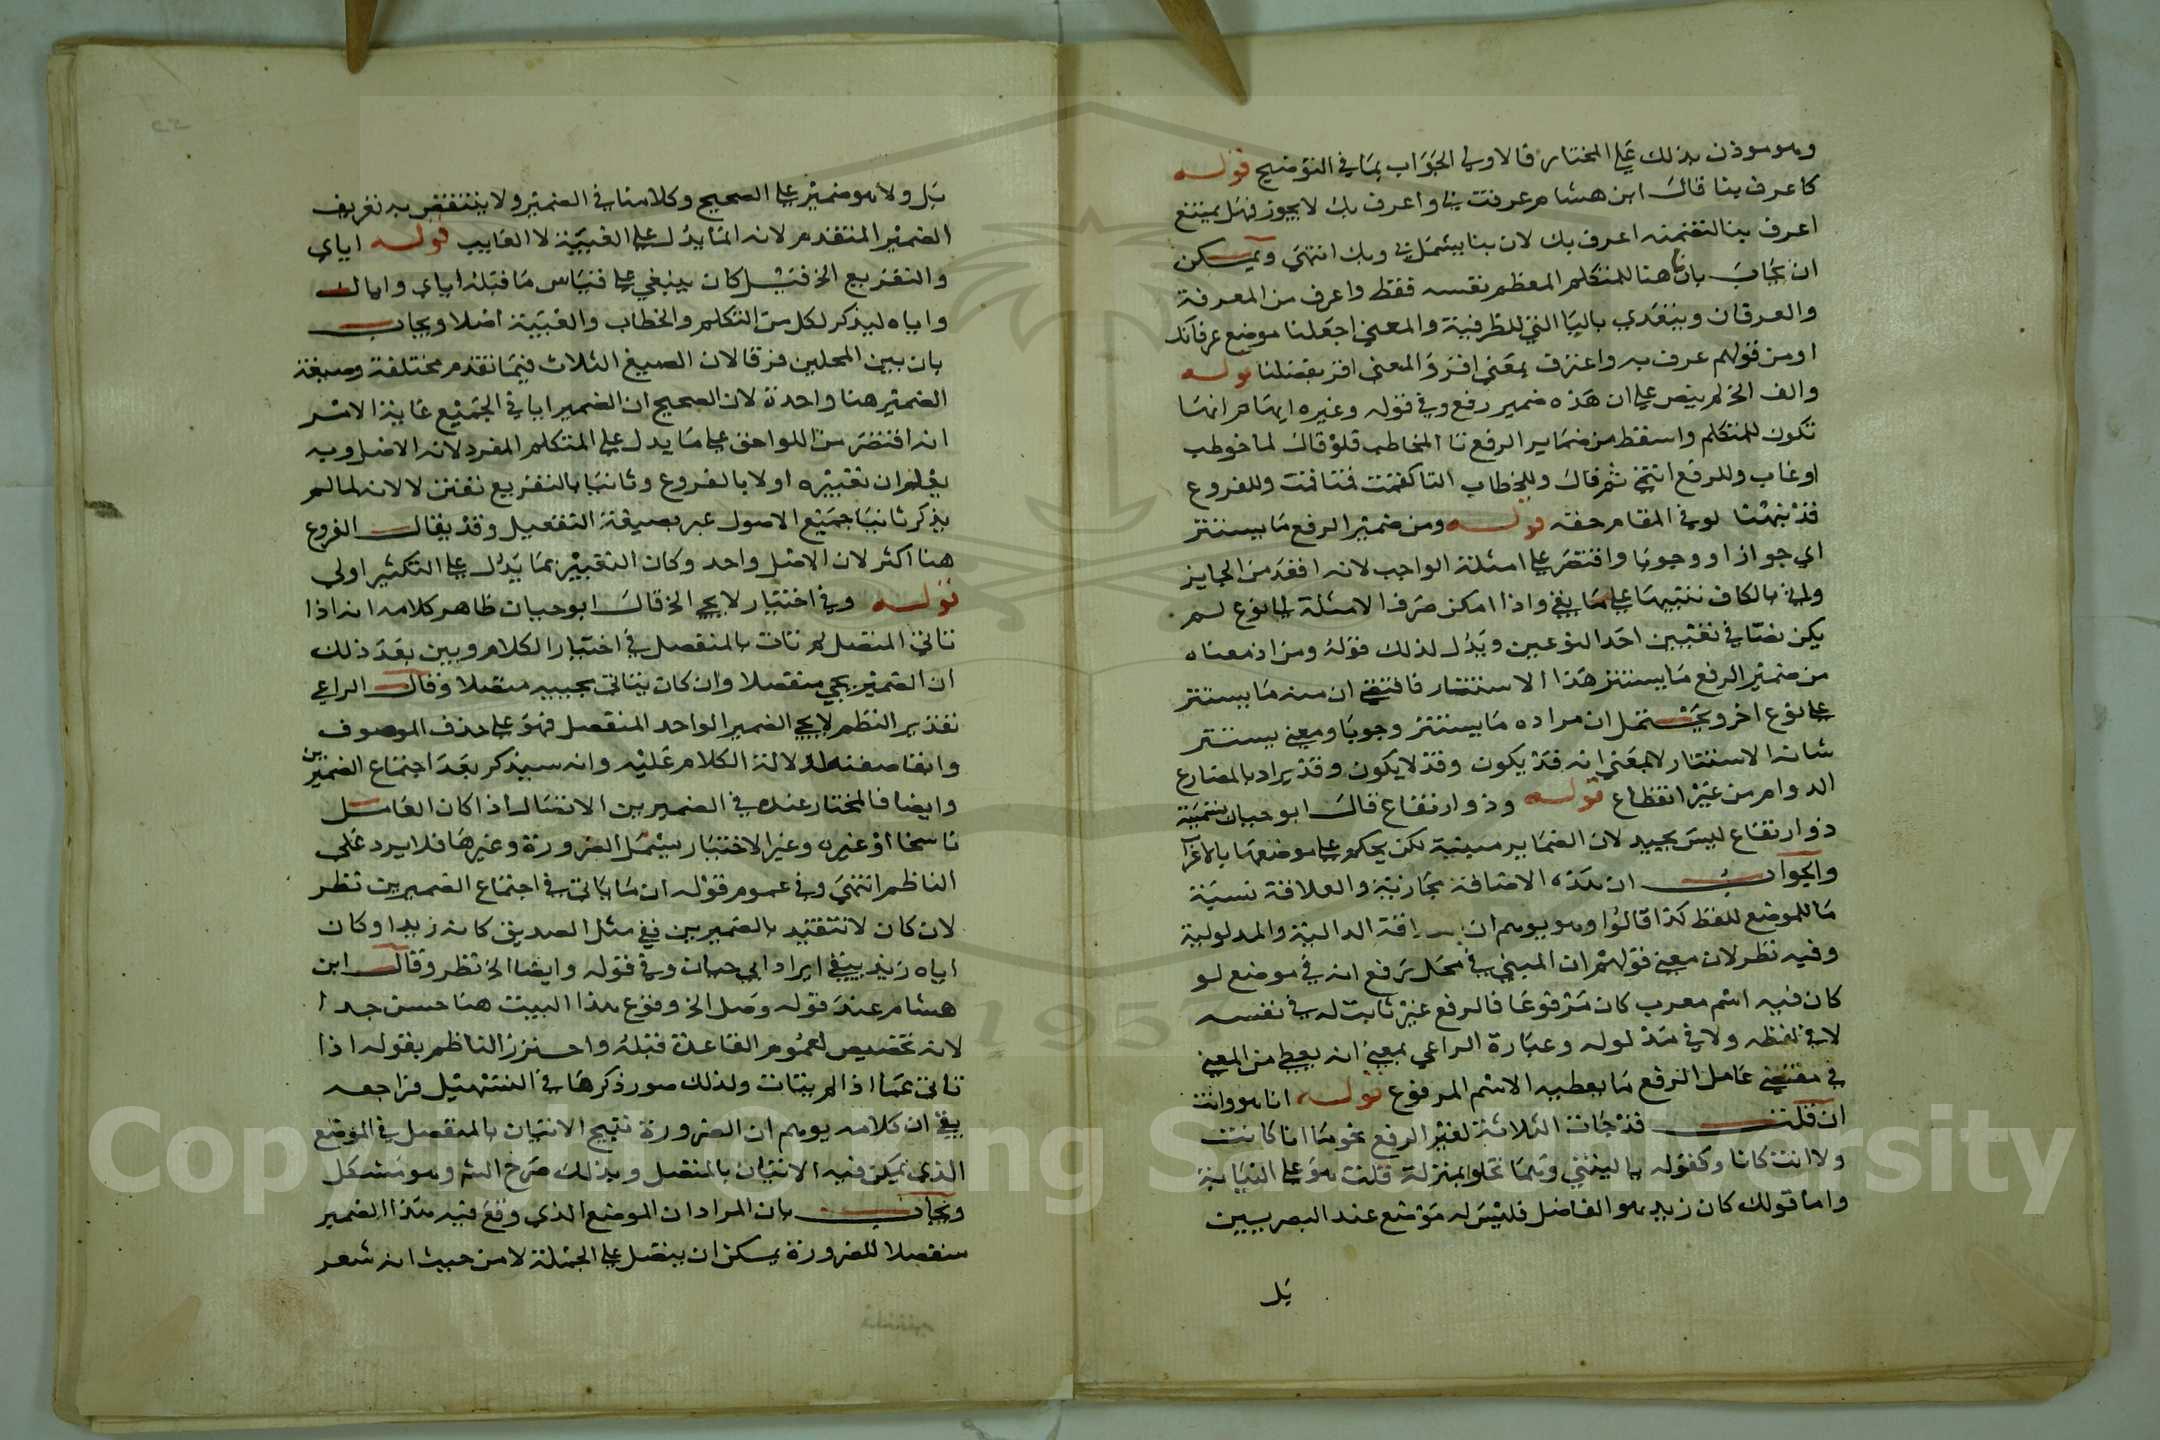 وهو موذن بذلك على المختار فالاولى الجواب بما في التوضيح قوله
كاعرف بنا قال ابن هشام عرفت بي واعرف بك لا يجوز فهل يمتنع
اعرف بنا لتضمنه اعرف بك لان بنا يشمل بي وبك انتهى ويمكن
ان يجاب بان نا هنا للمتكلم المعظم نفسه فقط واعرف من المعرفة
والعرفان ويتعدي بالبا التي للظرفية والمعني اجعلنا موضع عرفانك
او من قولهم عرف به واعترف بمعني اقر والمعني اقر بفضلنا قوله
والف الخ لم ينص على ان هذه ضمير رفع وفي قوله وغيره ايهام انها
تكون للمتكلم واسقط من ضماير الرفع تا المخاطب فلو قال لما خوطب
او غاب وللرفع انتخ ثم قال وللخطاب التا كقمت قمتا قمت وللفروع
قد نبهنا لوفي المقام حقه قوله ومن ضمير الرفع ما يستتر
اي جوازا او وجوبا واقتصر على امثلة الواجب لانه اقعد من الجايز
واتي بالكاف تنبيها على ما بقي واذا امكن صرف الامثلة لنوع لم
يكن نصا في تعيين احد النوعين ويدل لذلك قوله ومن اذ معناه
من ضمير الرفع ما يستتر هذا الاستتار فاقتضي ان منه ما يستتر
على نوع اخر ويحتمل ان مراده ما يستتر وجوبا ومعني يستتر
شانه الاستتار لا بمعني انه قد يكون وقد لا يكون وقد يراد بالمضارع
الدوام من غير انقطاع قوله وذو ارتفاع قال ابو حيان تسمية
ذو ارتفاع ليس بجيد لان الضماير مبنية لكن يحكم على موضعها بالاعراب
والجواب ان هذه الاضافة مجازية والعلاقة تسمية
ما للموضع للفظ كذا قالوا وهو يوهم ان الدالية والمدلولية
وفيه نظر لان معني قولهم ان المبني في محل رفع انه في موضع لو
كان فيه اسم معرب كان مرفوعا فالرفع غير ثابت له في نفسه
لا في لفظه ولا في مدلوله وعبارة الراعي بمعني انه يعطي من المعني
في مقتضي عامل الرفع ما يعطيه الاسم المرفوع قوله انا هو وانت
ان قلت قد جات الثلاثة لغير الرفع نحو ما انا كانت
ولا انت كانا وكقوله يا ليتني وهما نخلو بمنزلة قلت هو على النيابة
واما قولك كان زيد هو الفاضل فليس له موضع عند البصريين
بل
بل ولا هو ضمير على الصحيح وكلامنا في الضمير ولا ينتقض به تعريف
الضمير المتقدم لانه انما يدل على الغيبة لا الغايب قوله اياي
والتفريع الخ قيل كان ينبغي على قياس ما قبله اياي واياك
واياه ليذكر لكل من التكلم والخطاب والغيبة اصلا ويجاب
بان بين المحلين فرقا لان الصيغ الثلاث فيما تقدم مختلفة وصيغة
الضمير هنا واحدة لان الصحيح ان الضمير ايا في الجميع غاية الامر
انه اقتصر من اللواحق على ما يدل على المتكلم المفرد لانه الاصل وبه
يعلم ان تعبيره اولا بالفروع وثانيا بالتفريع تفنن لا لانه لما لم
يذكر ثانيا جميع الاصول عبر بصيغة التفعيل وقد يقال الفروع
هنا اكثر لان الاصل واحد وكان التعبير بما يدل على التكثير اولي
قوله وفي اختيار لا يجي الخ قال ابو حيان ظاهر كلامه انه اذا
تاتي المتصل لم تات بالمنفصل في اختيار الكلام وبين بعد ذلك
ان الضمير يجي منفصلا وان كان يتاتي مجييه متصلا وقال الراعي
تقدير النظم لا يجي الضمير الواحد المنفصل فهو على حذف الموصوف
وابقا صفته لدلالة الكلام عليه وانه سيذكر بعد اجتماع الضميرين
وايضا فالمختار عنده في الضميرين الاتصال اذا كان العامل
ناسخا او غيره وغير الاختيار يشمل الضرورة وغيرها فلا يرد على
الناظم انتهى وفي عموم قوله ان ما ياتي في اجتماع الضميرين نظر
لان كان لا تتقيد بالضميرين ففي مثل الصديق كانه زيد او كان
اياه زيد يبقي ايراد ابي حيان وفي قوله وايضا الخ نظر وقال ابن
هشام عند قوله وصل الخ وقوع هذا البيت هنا حسن جدا
لانه تخصيص لعموم القاعدة قبله واحترز الناظم بقوله اذا
تاتي عما اذا لم يتات ولذلك صور ذكرها في التسهيل فراجعه
بقي ان كلامه يوهم ان الضرورة تبيح الاتيان بالمنفصل في الموضع
الذي يمكن فيه الاتيان بالمتصل وبذلك صرح الشم وهو مشكل
ويجاب بان المراد ان الموضع الذي وقع فيه هذا الضمير
منفصلا للضرورة يمكن ان يتصل على الجملة لا من حيث انه شعر